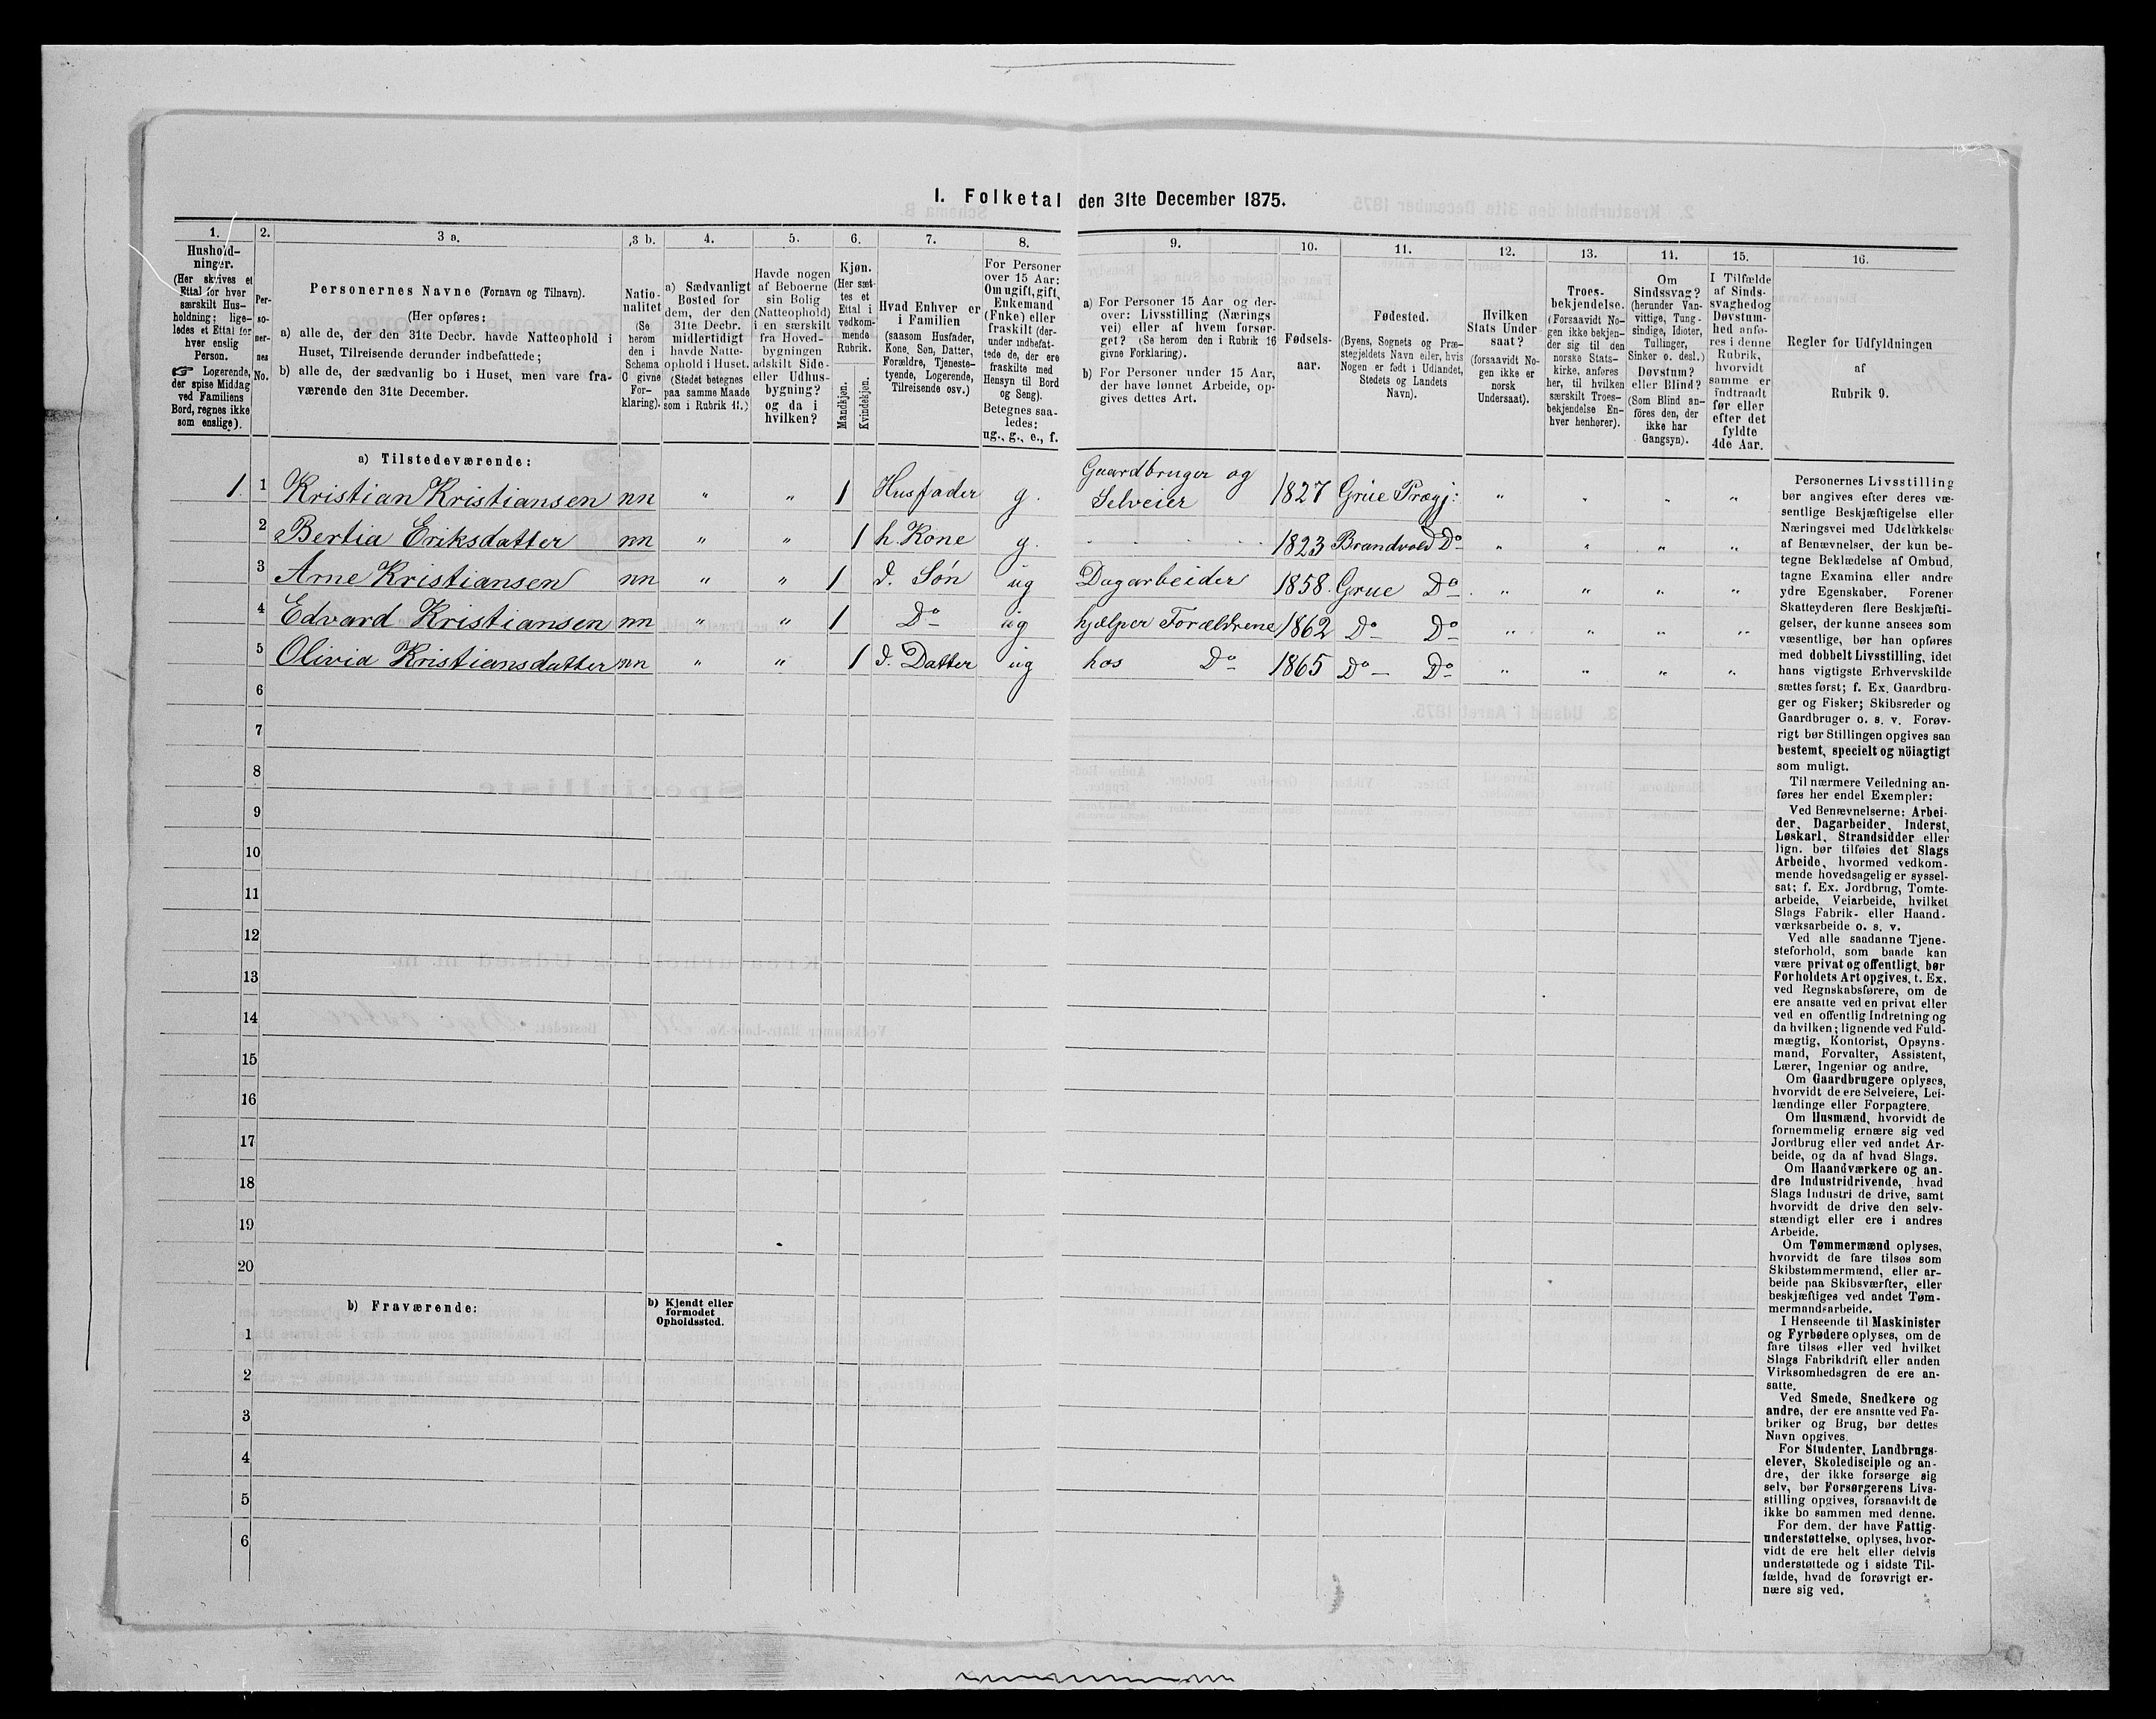 I. Folketal den 31te December 1875.
1. 2. 3 a. 3 b. 4. 5. 6. 7. 8. 9. 10. 11. 12. 13. 14. 15. 16.
Hushold-
ninger.
(Her skrives et
Ettal for hver
særskilt Hus-
holdning; lige-
ledes et Ettal for
hver enslig
Person.
☞ Logerende,
der spise Middag
ved Familiens
Bord, regnes ikke
som enslige).
Per-
so-
ner-
nes
No.
Personernes Navne (Fornavn og Tilnavn).
(Her opføres:
a) alle de, der den 31te Decbr. havde Natteophold i
Huset, Tilreisende derunder indbefattede;
b) alle de, der sædvanlig bo i Huset, men vare fra-
værende den 31te December.
Natio-
nalitet
(Se
herom
den i
Schema
O givne
For-
klaring).
a) Sædvanligt
Bosted for
dem, der den
31te Decbr.
midlertidigt
havde Natte-
ophold i Huset.
(Stedet betegnes
paa samme Maade
som i Rubrik 11.)
Havde nogen
af Beboerne
sin Bolig
(Natteophold)
i en særskilt
fra Hoved-
bygningen
adskilt Side-
eller Udhus-
bygning?
og da i
hvilken?
Kjøn.
(Her sæt-
tes et
Ettal i
vedkom-
mende
Rubrik.
Mandkjøn.
Kvindekjøn.
Hvad Enhver er
i Familien
(saasom Husfader,
Kone, Søn, Datter,
Forældre, Tjeneste-
tyende, Logerende,
Tilreisende osv.)
For Personer
over 15 Aar:
Om ugift, gift,
Enkemand
(Enke) eller
fraskilt (der-
under indbefat-
tede de, der ere
fraskilte med
Hensyn til Bord
og Seng).
Betegnes saa-
ledes:
ug., g., e., f.
a) For Personer 15 Aar og der-
over: Livsstilling (Nærings
vei) eller af hvem forsør-
get? (Se herom den i Rubrik 16
givne Forklaring).
b) For Personer under 15 Aar,
der have lønnet Arbeide, op-
gives dettes Art.
Fødsels-
aar.
Fødested.
(Byens, Sognets og Præ-
stegjeldets Navn eller, hvis
Nogen er født i Udlandet,
Stedets og Landets
Navn).
Hvilken
Stats Under-
saat?
(forsaavidt No-
gen ikke er
norsk
Undersaat).
Troes-
bekjendelse.
(Forsaavidt No-
gen ikke bekjen-
der sig til den
norske Stats-
kirke, anføres
her, til hvilken
særskilt Troes-
bekjendelse En-
hver henhører).
Om
Sindssvag?
(herunder Van-
vittige, Tung-
sindige, Idioter,
Tullinger,
Sinker o. desl.)
Døvstum?
eller Blind?
(Som Blind an-
føres den, der
ikke har
Gangsyn).
I Tilfælde
af Sinds-
svaghed og
Døvstum-
hed anfø-
res i denne
Rubrik,
hvorvidt
samme er
indtraadt
før eller
efter det
fyldte
4de Aar.
Regler for Udfyldningen
af
Rubrik 9.
a) Tilstedeværende:
1. 1 Kristian Kristiansen nn " " 1 Husfader g. Gaardbruger og Selveier 1827 Grue Prægj: " " " "
2 Bertia Eriksdatter nn " " 1 h. Kone g. . . . . 1823 Brandvold Do " " " "
3 Arne Kristiansen nn " " 1 d. Søn ug Dagarbeider 1858. Grue Do " " " "
4 Edvard Kristiansen nn " " 1 Do ug hjælper Forældrene 1862 Do Do " " " "
5 Olivia Kristiansdatter nn " " 1 d. Datter ug hos Do 1865 Do Do " " " "
6
7
8
9
10
11
12
13
14
15
16
17
18
19
20
b) Fraværende:
b) Kjendt eller
formodet
Opholdssted.
1
2
3
4
5
6
Personernes Livsstilling
bør angives efter deres væ-
sentlige Beskjæftigelse eller
Næringsvei med Udelukkelse
af Benævnelser, der kun be-
tegne Beklædelse af Ombud,
tagne Examina eller andre
ydre Egenskaber. Forener
Skatteyderen flere Beskjæfti-
gelser, der kunne ansees som
væsentlige, bør han opføres
med dobbelt Livsstilling, idet
hans vigtigste Erhvervskilde
sættes først; f. Ex. Gaardbru-
ger og Fisker; Skibsreder og
Gaardbruger o. s. v. Forøv-
rigt bør Stillingen opgives saa
bestemt, specielt og nöiagtigt
som muligt.
Til nærmere Veiledning an-
føres her endel Exempler:
Ved Benævnelserne: Arbei-
der, Dagarbeider, Inderst,
Løskarl, Strandsidder eller
lign. bør tilføies det Slags
Arbeide, hvormed vedkom-
mende hovedsagelig er syssel-
sat; f. Ex. Jordbrug, Tomte-
arbeide, Veiarbeide, hvilket
Slags Fabrik- eller Haand-
værksarbeide o. s. v.
Ved alle saadanne Tjene-
steforhold, som baade kan
være privat og offentligt, bør
Forholdets Art opgives, t. Ex.
ved Regnskabsførere, om de
ere ansatte ved en privat eller
ved en offentlig Indretning og
da hvilken; lignende ved Fuld-
mægtig, Kontorist, Opsyns-
mand, Forvalter, Assistent,
Lærer, Ingeniør og andre.
Om Gaardbrugere oplyses,
hvorvidt de ere Selveiere, Lei-
lændinge eller Forpagtere.
Om Husmænd, hvorvidt de
fornemmelig ernære sig ved
Jordbrug eller ved andet Ar-
beide, og da af hvad Slags.
Om Haandværkere og an-
dre Industridrivende, hvad
Slags Industri de drive, samt
hvorvidt de drive den selv-
stændigt eller ere i andres
Arbeide.
Om Tømmermænd oplyses,
hvorvidt de fare tilsøs som
Skibstømmermænd, eller ar-
beide paa Skibsværfter, eller
beskjæftiges ved andet Tøm-
mermandsarbeide.
I Henseende til Maskinister
og Fyrbødere oplyses, om de
fare tilsøs eller ved hvilket
Slags Fabrikdrift eller anden
Virksomhedsgren de ere an-
satte.
Ved Smede, Snedkere og
andre, der ere ansatte ved Fa-
briker og Brug, bør dettes
Navn opgives.
For Studenter, Landbrugs-
elever, Skoledisciple og an-
dre, der ikke forsørge sig
selv, bør Forsørgerens Livs-
stilling opgives, forsaavidt de
ikke bo sammen med denne.
For dem, der have Fattig-
understøttelse, oplyses, hvor-
vidt de ere helt eller delvis
understøttede og i sidste Til-
fælde, hvad de forøvrigt er-
nære sig ved.